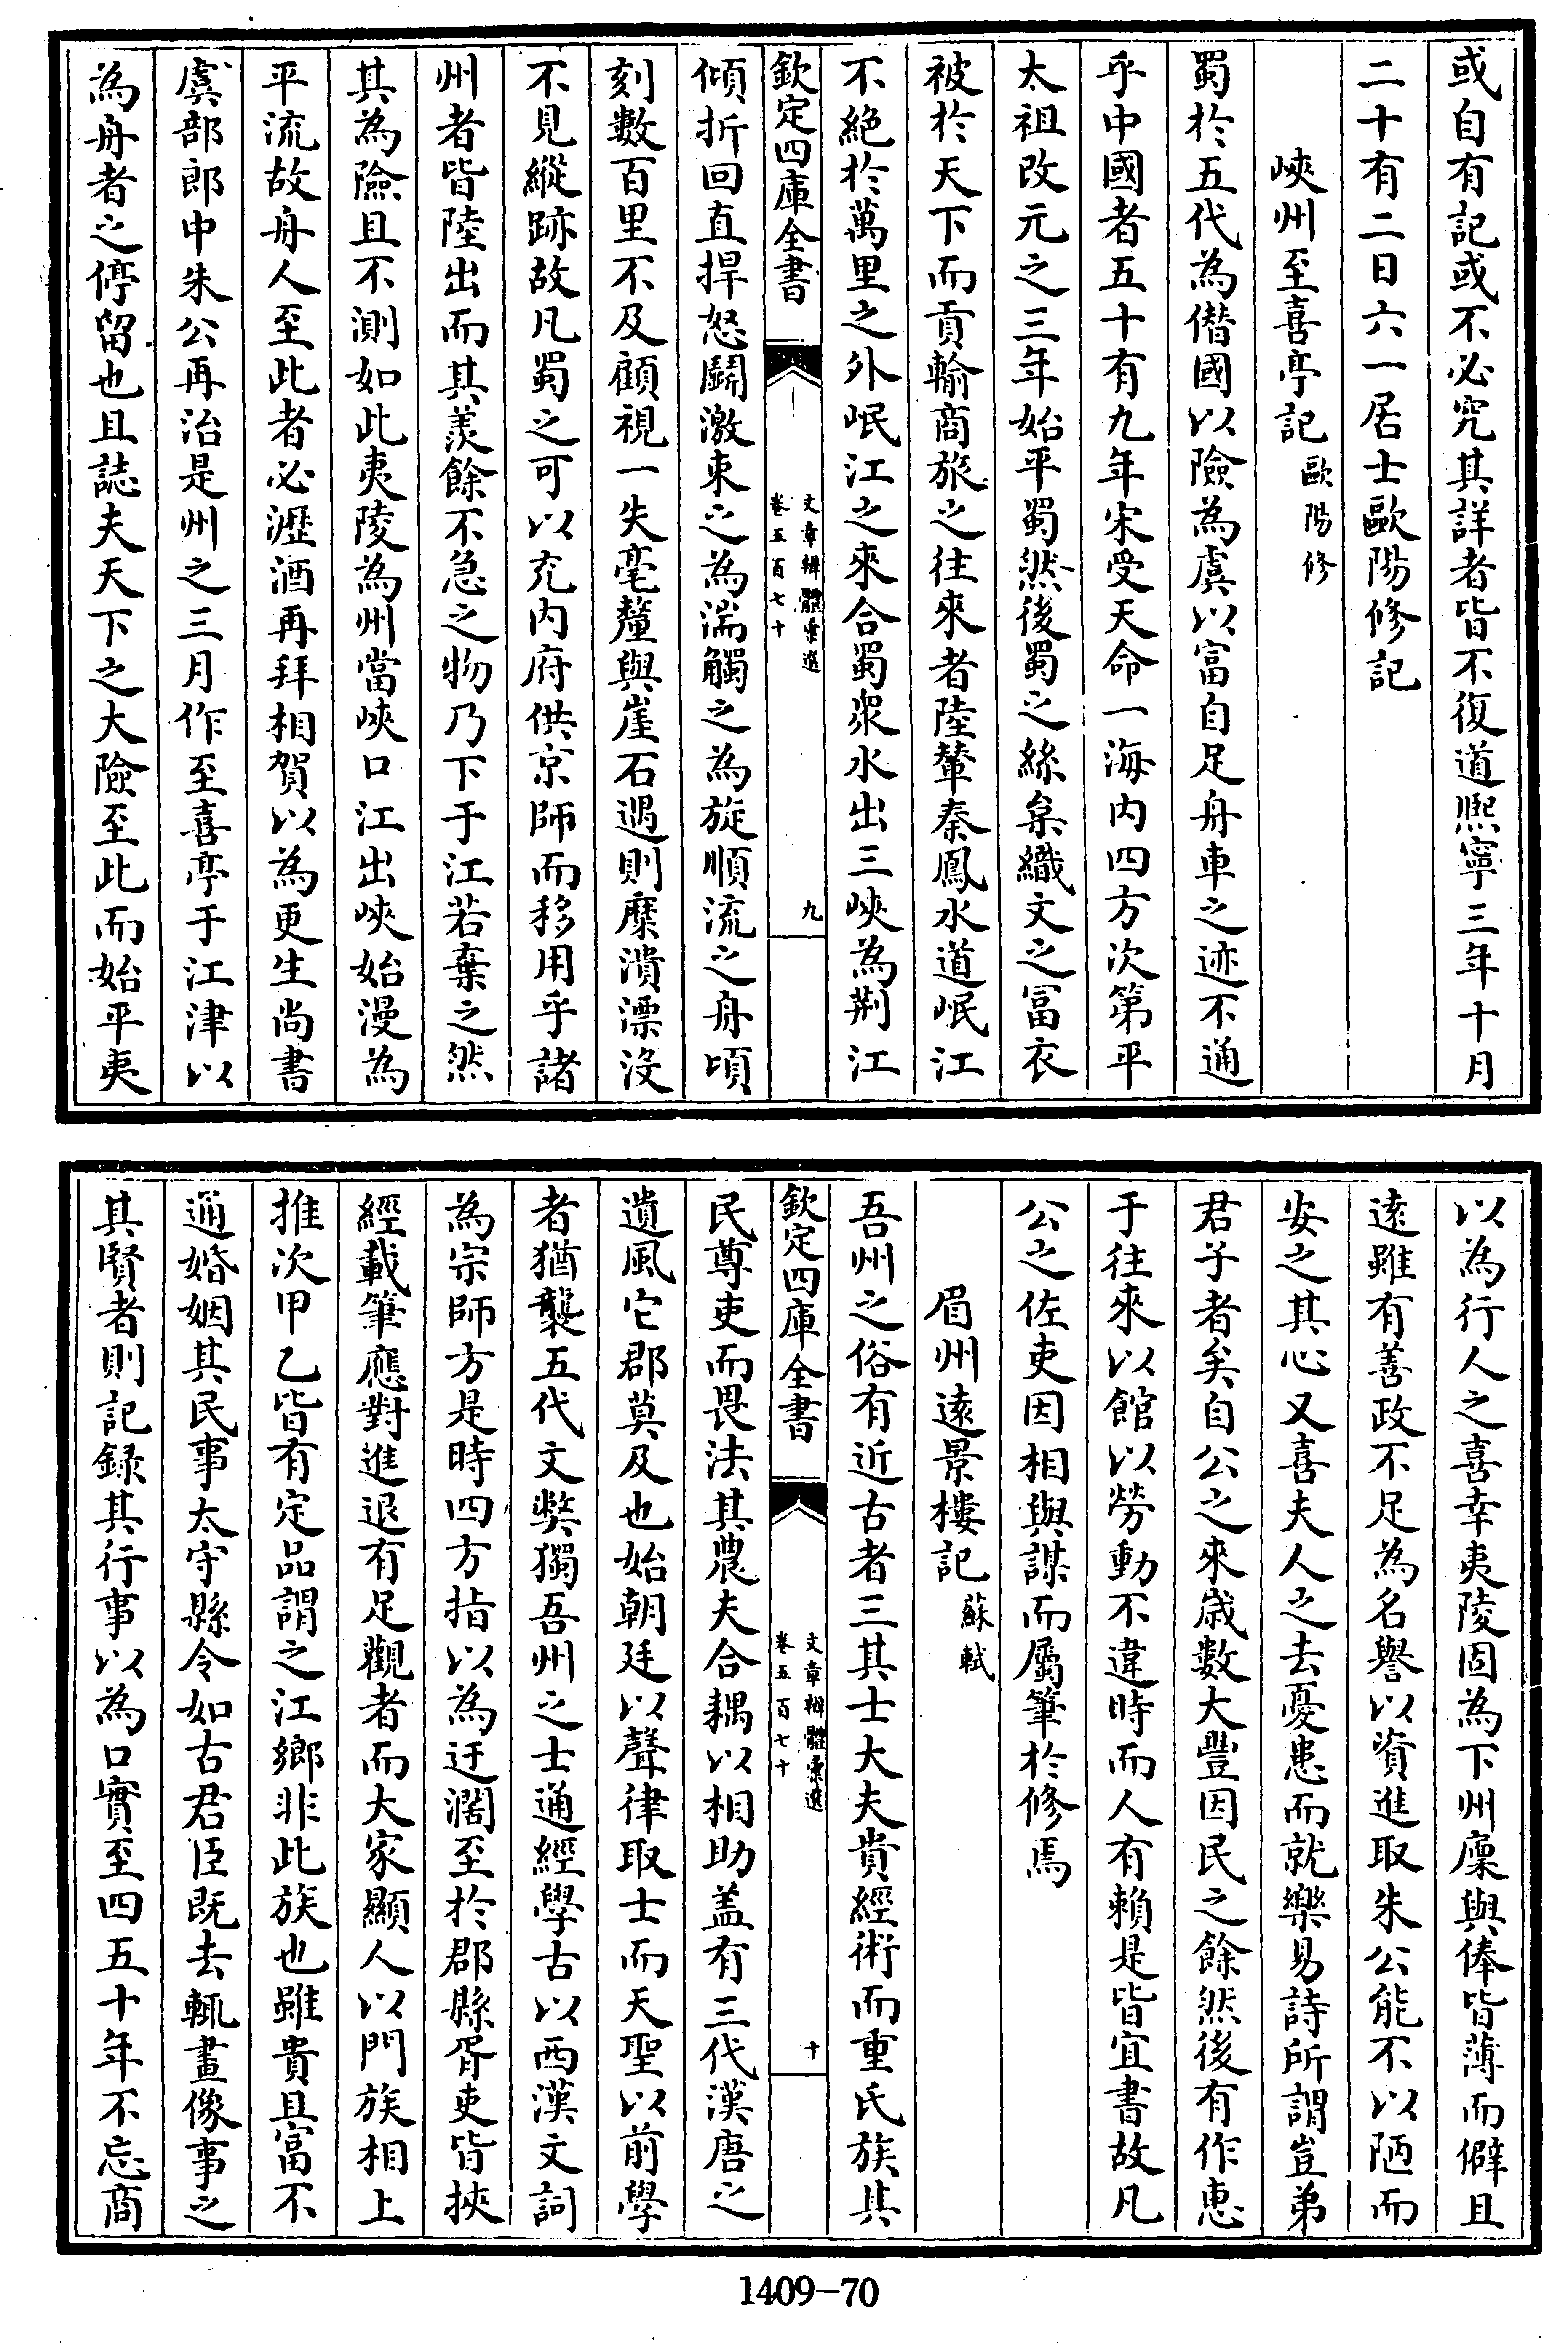 或自有記或不必究其詳者皆不復道熙寧三年十月
二十有二日六一居士歐陽修記
峽州至喜亭記歐陽修
蜀於五代為僣國以險為虞以富自足舟車之迹不通
乎中國者五十有九年宋受天命一海內四方次第平
太祖改元之三年始平蜀然後蜀之絲枲織文之冨衣
被於天下而貢輸商旅之往來者陸輦秦鳳水道岷江
不絕於萬里之外岷江之來合蜀衆水出三峽為荆江
欽定四庫全書
文章辨體彙選
卷五百七十
九
傾折回直捍怒鬭激束之為湍觸之為旋順流之舟頃
刻數百里不及顧視一失毫釐與崖石遇則糜潰漂没
不見縱跡故凡蜀之可以充内府供京師而移用乎諸
州者皆陸出而其羨餘不急之物乃下于江若棄之然
其為險且不測如此夷陵為州當峽口江出峽始漫為
平流故舟人至此者必瀝酒再拜相賀以為更生尚書
虞部郎中朱公再治是州之三月作至喜亭于江津以
為舟者之停留也且誌夫天下之大險至此而始平夷
以為行人之喜幸夷陵固為下州廩與俸皆薄而僻且
逺雖有善政不足為名譽以資進取朱公能不以陋而
安之其心又喜夫人之去憂患而就樂易詩所謂豈弟
君子者矣自公之來歲數大豐因民之餘然後有作惠
于往來以館以勞動不違時而人有賴是皆宜書故凡
公之佐吏因相與謀而屬筆於修焉
眉州逺景樓記蘇軾
吾州之俗有近古者三其士大夫貴經術而重氏族其
欽定四庫全書
文章辨體彙選
卷五百七十
十
民尊吏而畏法其農夫合耦以相助盖有三代漢唐之
遺風它郡莫及也始朝廷以聲律取士而天聖以前學
者猶襲五代文弊獨吾州之士通經學古以西漢文詞
為宗師方是時四方指以為迂濶至於郡縣胥吏皆挾
經載筆應對進退有足觀者而大家顯人以門族相上
推次甲乙皆有定品謂之江鄉非此族也雖貴且富不
通婚姻其民事太守縣令如古君臣既去輒畫像事之
其賢者則記録其行事以為口實至四五十年不忘商
1409-70